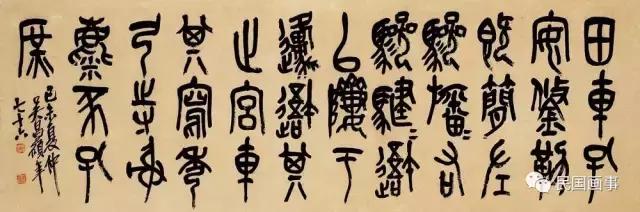 田車孔
安鋚勒
既簡左
驂旛〻右
驂騝〻避
以隮于
邍避其
止宮車
其寫秀
弓寺射
麋豕孔
庶
己未夏仲
吳昌碩年
七十六
民国画事